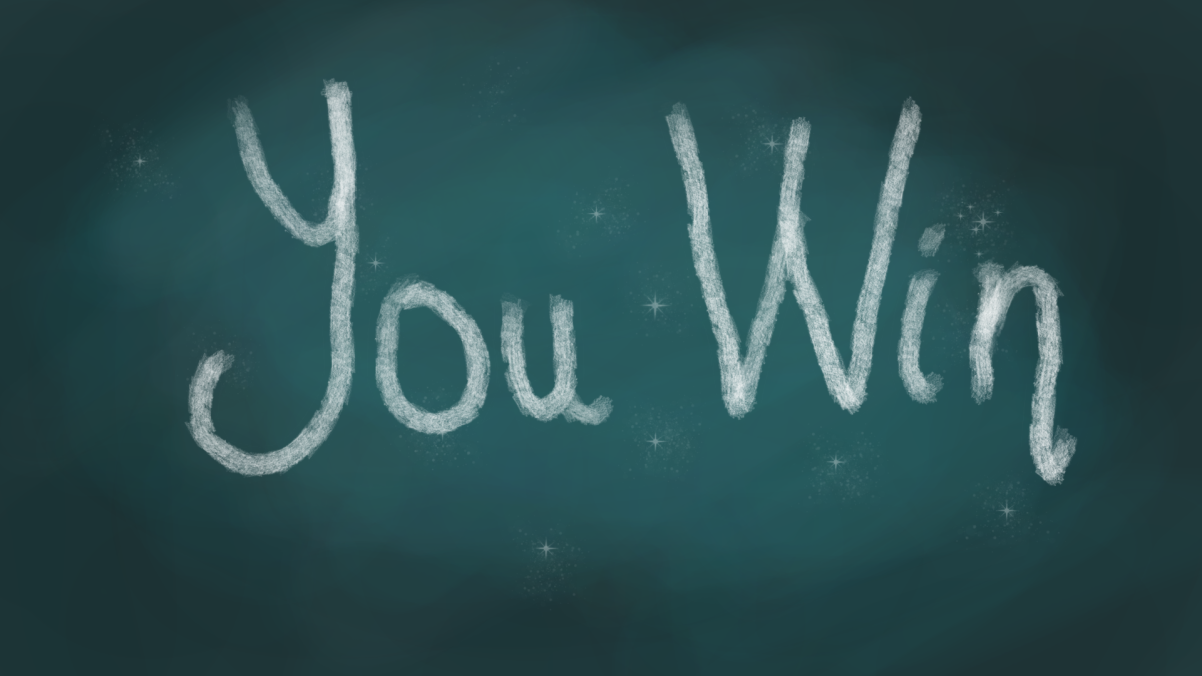 You Win